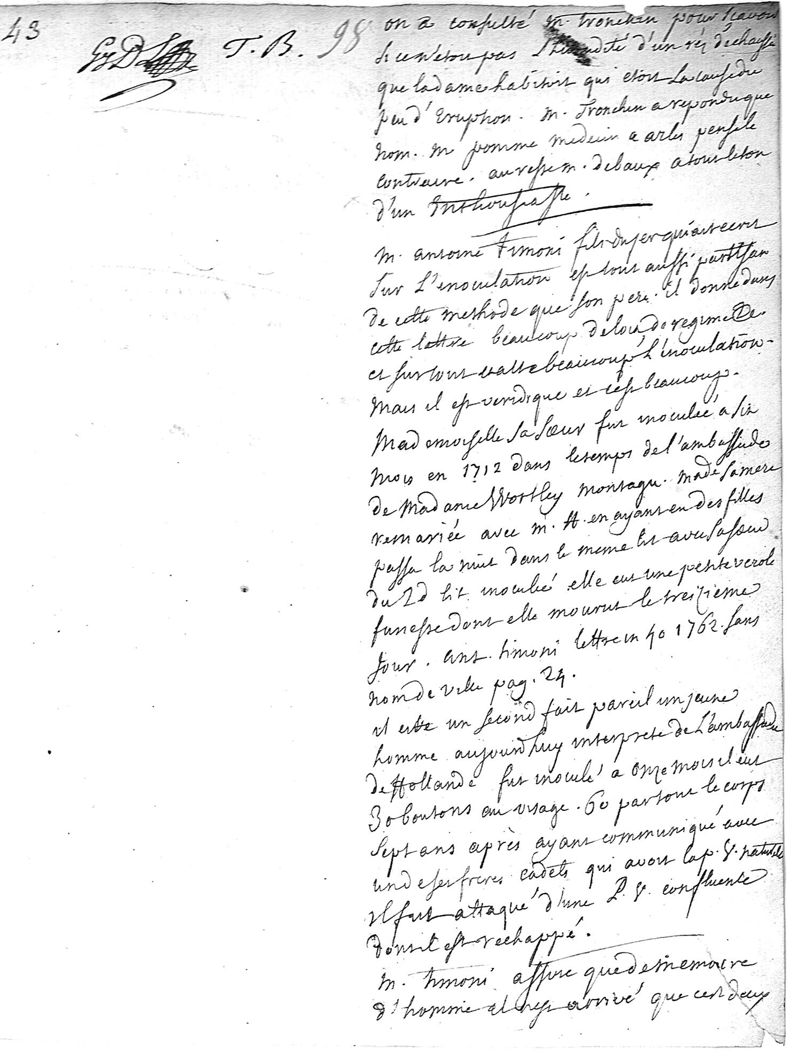 43
T. B. 98
on a consulté m. Tronchin pour scavoir
si ce n'etoit pas l'humidité d'un réz de chaussé
que la dame habitoit qui etoit la cause du
peu d'Eruption. m. Tronchin a repondu que
non. m pomme medecin a arles pense le
contraire. au reste m. debaux a tout le ton
d'un Enthousiaste.
m. antoine Timoni fils du ser qui a ecrit
sur L'inoculation est tout aussi partisan
de cette methode que son pere. il donne dans
cette lettre beaucoup de loix de regime
et sur tout exalte beaucoup l'inoculation-
mais il est veridique et c'est beaucoup.
Mademoiselle sa sœur fut inoculeé a six
mois en 1712 dans le temps de l'ambassade
de Madame Wortley montagu. made sa mere
remariée avec m. H. en ayant eu des filles
passa la nuit dans le meme lit avec sa sœur
du 2d lit inoculeé elle eut une petite verole
funeste dont elle mourut le treizieme
jour. ant. timoni lettre in 4o 1762. sans
nom de ville pag. 24.
il cite un second fait pareil un jeune
homme aujourdhuy interprete de L'ambassade
de Hollande fut inoculé a onze mois il eut
30 boutons au visage. 60 par tout le corps
sept ans après ayant communiqué avec
un de ses freres cadets qui avoit la p. V. naturelle
il fut attaqué d'une P. V. confluente
dont il est rechappé.
m. timoni assure que de memoire
d'homme il n'est arrivé que ces deux